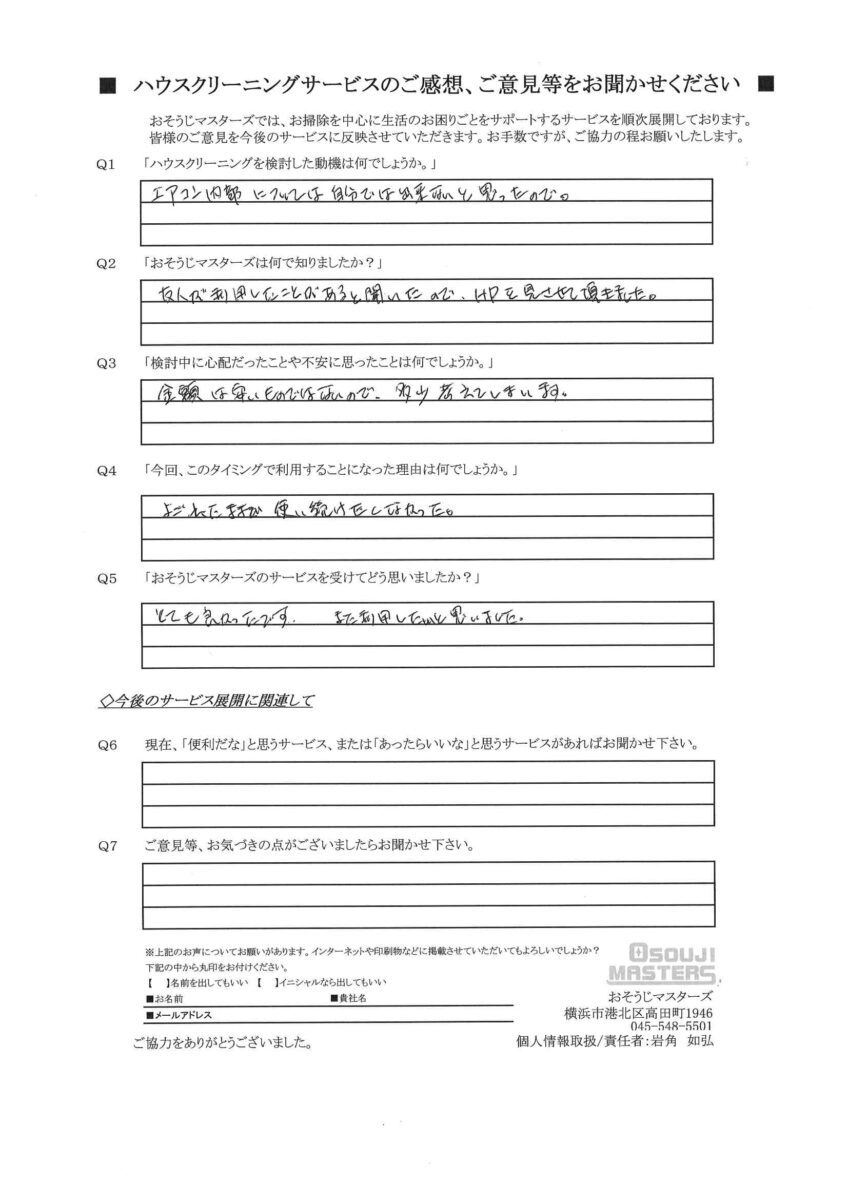 ■ ハウスクリーニングサービスのご感想、ご意見等をお聞かせください ■
おそうじマスターズでは、お掃除を中心に生活のお困りごとをサポートするサービスを順次展開しております。
皆様のご意見を今後のサービスに反映させていただきます。お手数ですが、ご協力の程お願いしたします。
Q1 「ハウスクリーニングを検討した動機は何でしょうか。」
エアコン内部については自分では出来ないと思ったので。
Q2 「おそうじマスターズは何で知りましたか？」
友人が利用したことがあると聞いたので、HPを見させて頂きました。
Q3 「検討中に心配だったことや不安に思ったことは何でしょうか。」
金額は安いものではないので、多少考えてしまいます。
Q4 「今回、このタイミングで利用することになった理由は何でしょうか。」
よごれたままが使い続けたしなかった。
Q5 「おそうじマスターズのサービスを受けてどう思いましたか？」
とても良かったです。 また利用したいと思いました。
◇今後のサービス展開に関連して
Q6 現在、「便利だな」と思うサービス、または「あったらいいな」と思うサービスがあればお聞かせ下さい。
Q7 ご意見等、お気づきの点がございましたらお聞かせ下さい。
※上記のお声についてお願いがあります。インターネットや印刷物などに掲載させていただいてもよろしいでしょうか？
下記の中から丸印をお付けください。
【 】名前を出してもいい 【 】イニシャルなら出してもいい
■お名前 ■貴社名
■メールアドレス
ご協力をありがとうございました。
OSOUJI
MASTERS
おそうじマスターズ
横浜市港北区高田町1946
045-548-5501
個人情報取扱/責任者：岩角 如弘